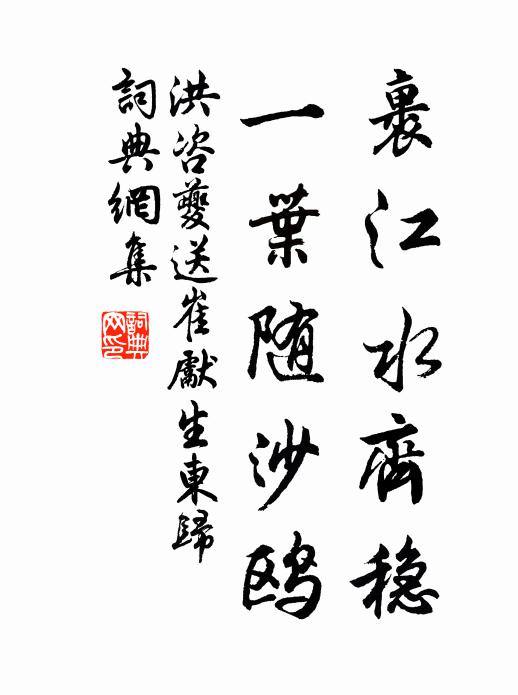 裏江水齊穩
一葉随沙鸥
洪咨夔送崔獻生東歸
詞典網集
詞典網印